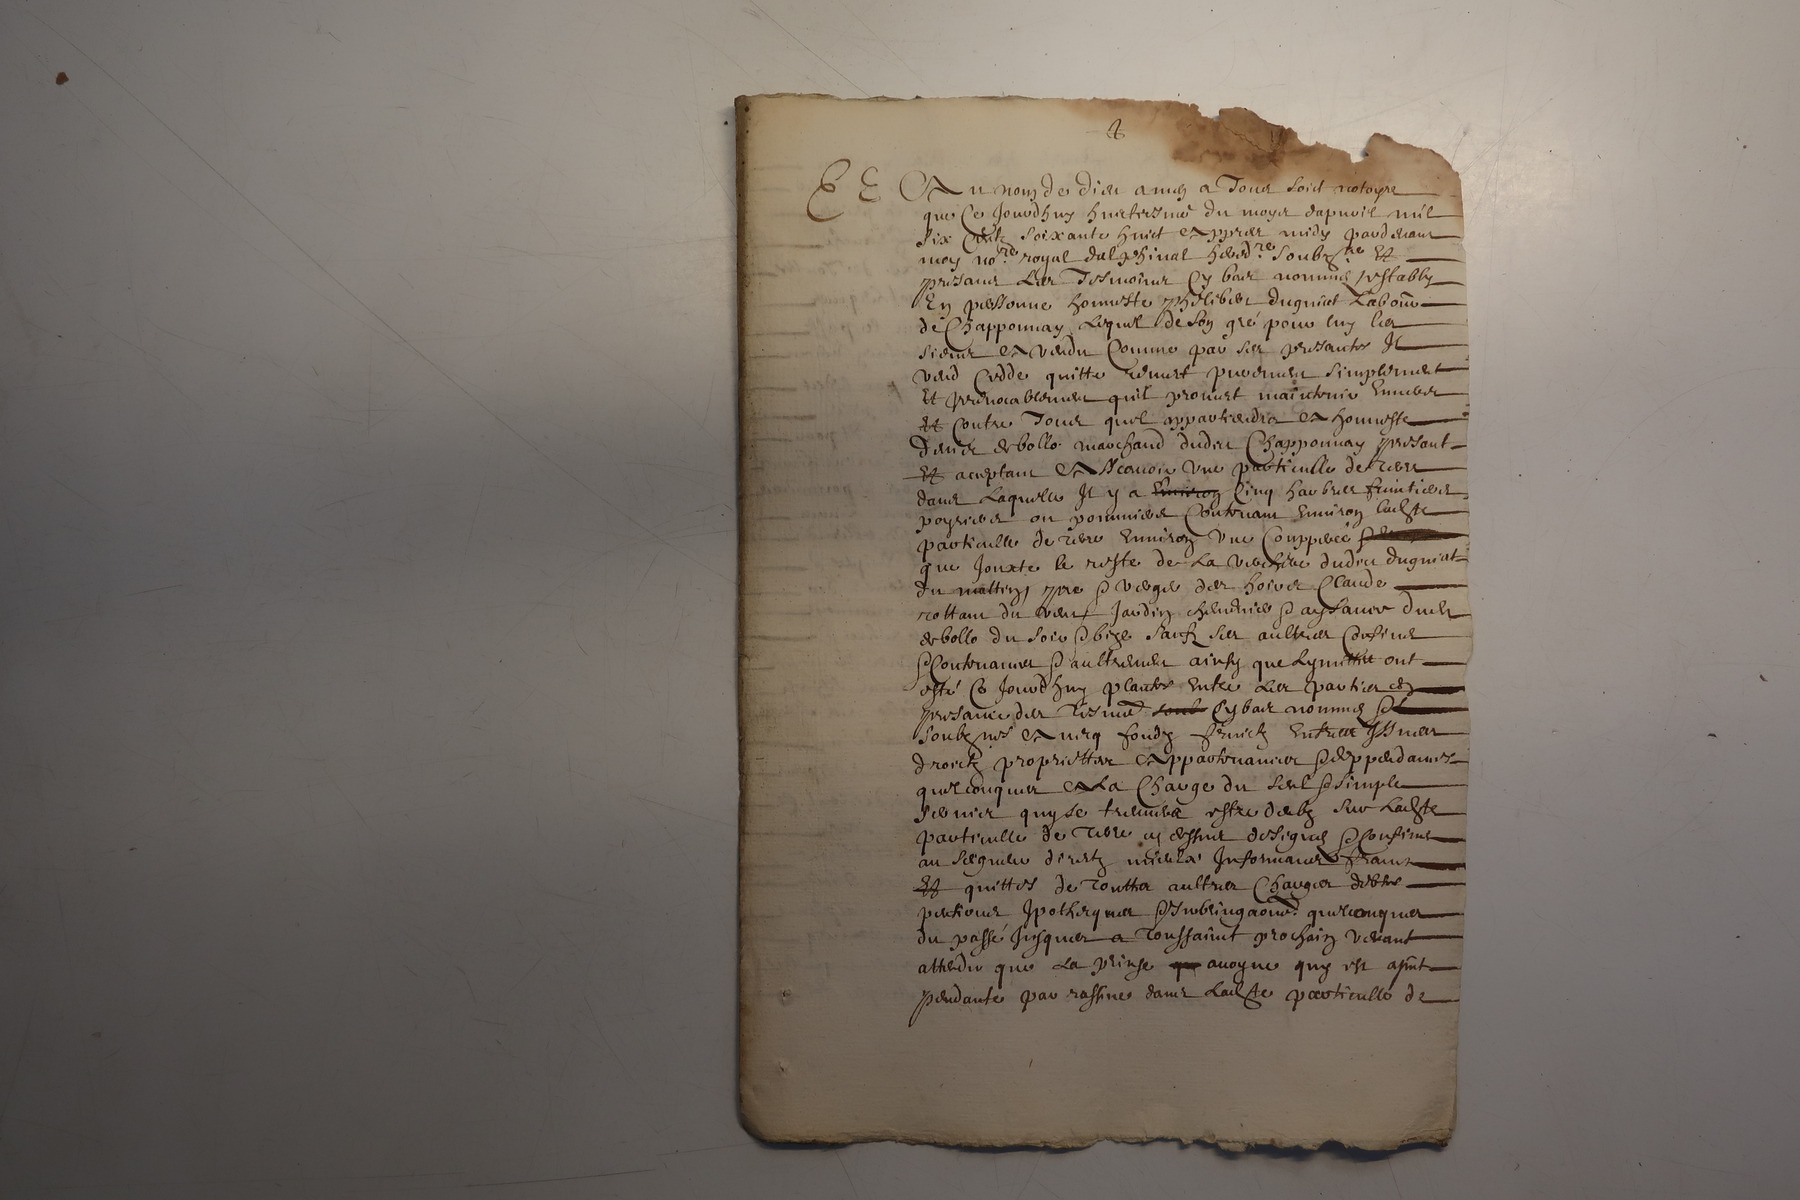 Au nom de dieu amen a Tous soict notoyre
que Ce Jourdhuy huictiesme du moys dapvril mil
six Centz soixante huict Et apprez midy pardevant
moy no.re royal dalphinal hered.re soubz.ne Et
presans Les Tesmoins Cy bas nommes sestably
En personne honneste phelibert duguiat Labour
de Chapponnay Lequel de son gré pour luy les
siens A vandu Comme par ses presantes Il
vend Cedde quitte remest purement simplement
Et Irrevocablement quil promest maintenir Envers
Et Contre Tous quil appartiendra A honneste
marchand dudit Chapponnay present
Et aceptant A Scavoir Une particulle de terre
dans Laquelle Il y a Environ Cinq harbres fruictiers
poyriers ou pommiers Contenant Environ ladte
particulle de terre Environ Une Couppée
que Jouxte le reste de La verchere dudit duguiat
du mattin, pre & verger des hoirs Claude
rottam du vent Jardin
du soir & bize sauf ses aultres Confins
& Contenances & aultrement ainsy que Lymittes ont
esté Ce Jourdhuy plantes Entre Les parties en
presance des Tesmoins soub Cybas nommes &
soubznes Avecq fondz fruictz Entrees Issues
droictz proprietter Appartenances & deppendances
quelconques A La Charge du seul & simple
servis quy se treuvera estre deubz sur Ladte
particulle de terre cy dessus designee & Confinee
au seigneur direct mieulx Informance franc
Et quittes de Toutte aultres Charges debtes
pentions Ipotheques & quelconques
du passé Jusques a Toussainct prochain venant
attendu que La prinse avoyne quy est
pendante par rassine dans Ladte particulle de